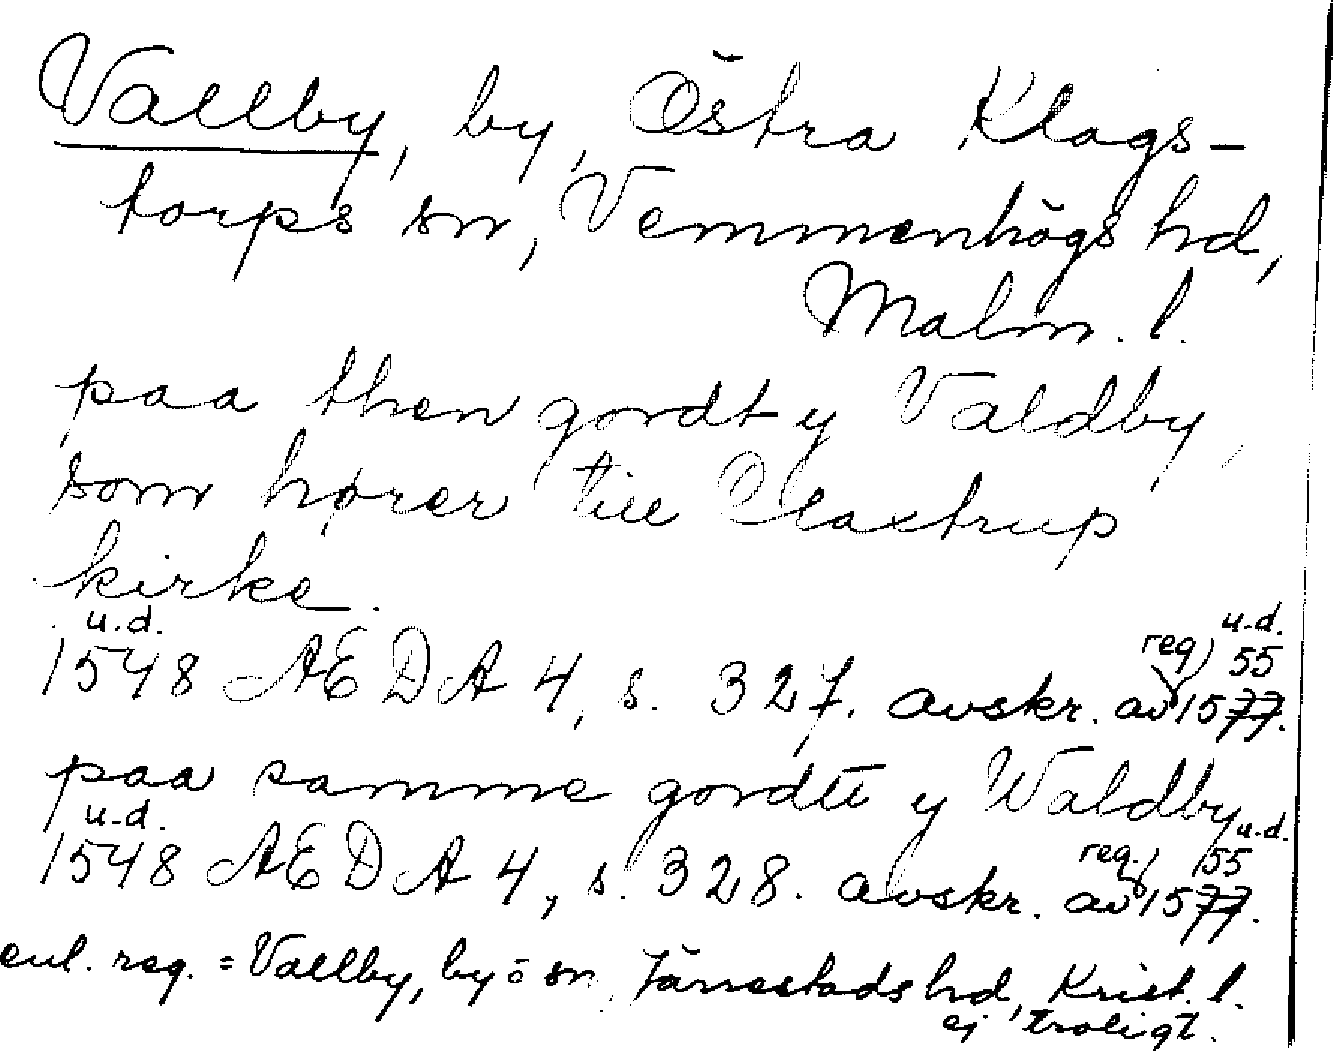 Vallby, by, Östra Klags-
torps sn, Vemmenhögs hd,
Malm. l.
paa then gordt y Valdby,
som hører till Claxtrup
kirke.
u.d. u.d.
reg) 55
1548 AEDA 4, s. 327. avskr. av 1577.
paa samme gordtt y Waldby
u.d. u.d.
reg.) 55
1548 AEDA 4, s. 328. avskr. av 1577.
enl. reg. = Vallby, by o sn, Järrestads hd, Krist. l.
ej troligt.